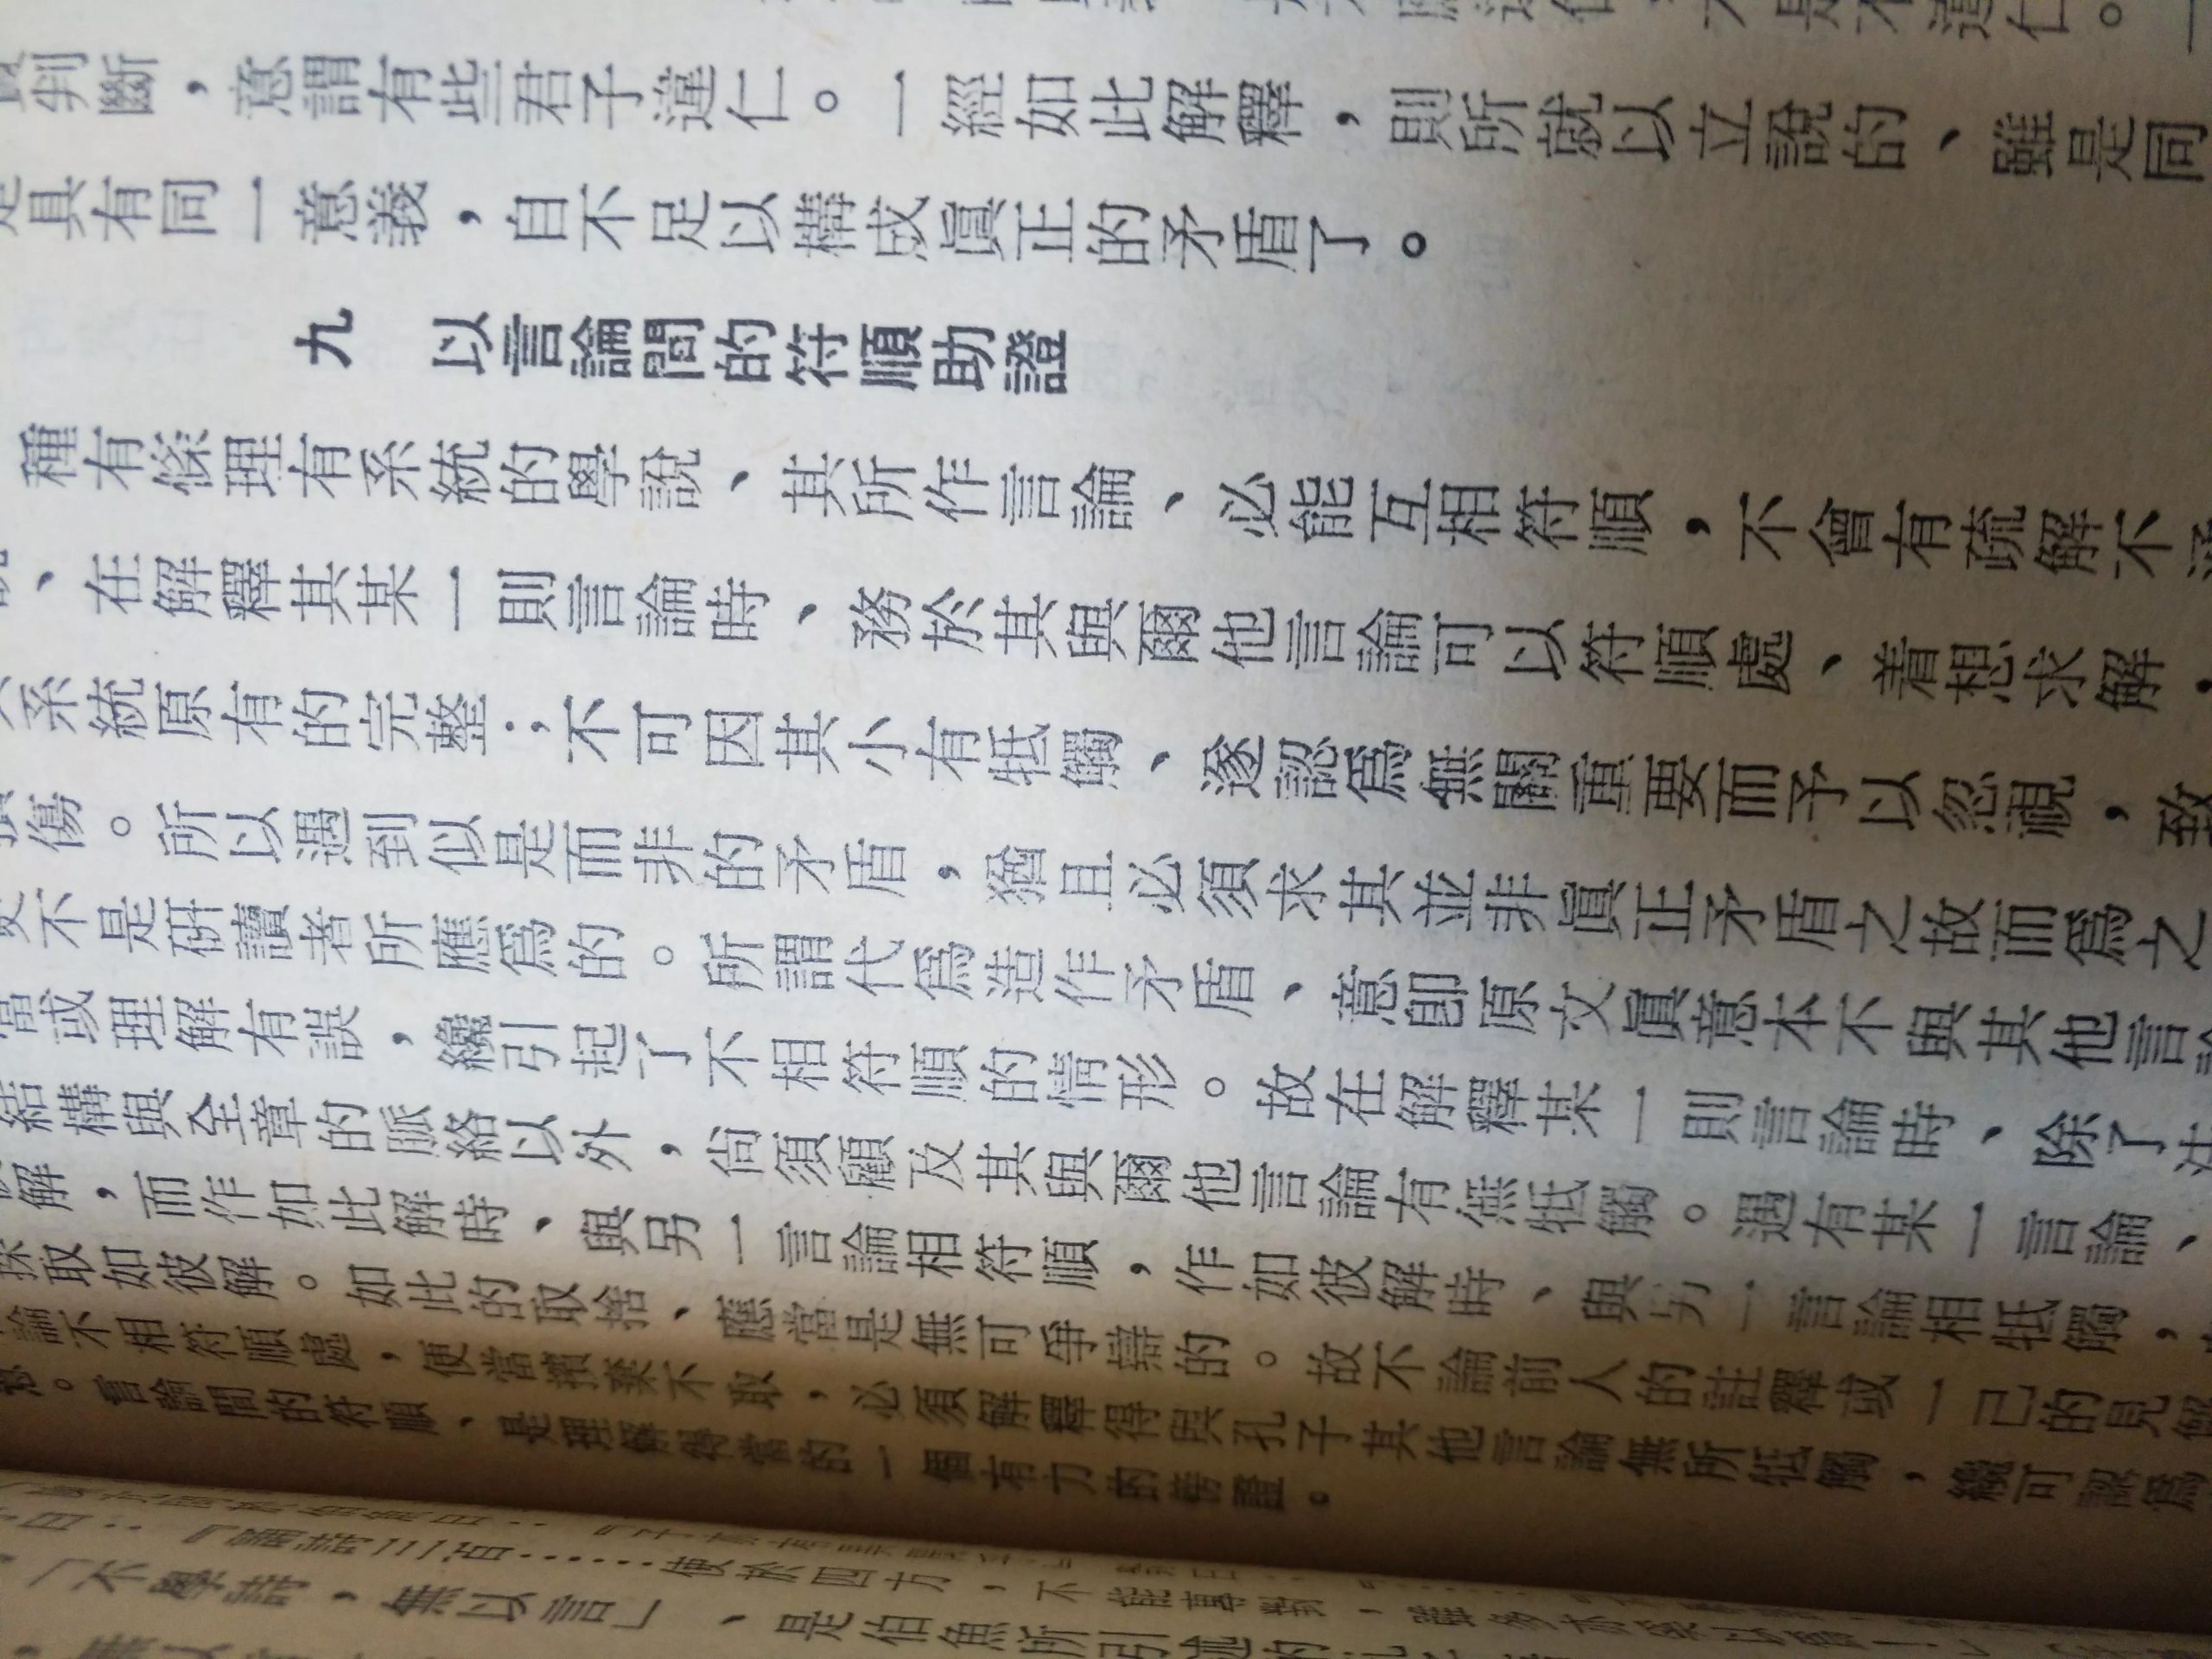 判斷，意謂有些君子違仁。一經如此解釋，則所就以立說的、雖是同
是具有同一意義，自不足以構成眞正的矛盾了。
九　以言論間的符順助證
種有條理有系統的學說、其所作言論、必能互相符順，不會有疏解不通
、在解釋其某一則言論時、務於其與爾他言論可以符順處、着想求解，
系統原有的完整；不可因其小有牴觸、遂認爲無關重要而予以忽視，致
傷。所以遇到似是而非的矛盾，猶且必須求其並非眞正矛盾之故而爲之
不是研讀者所應爲的。所謂代爲造作矛盾、意卽原文眞意本不與其他言論
當或理解有誤，纔引起了不相符順的情形。故在解釋某一則言論時、除了
結構與全章的脈絡以外，尙須顧及其與爾他言論有無牴觸。遇有某一言論、
解，而作如此解時、與另一言論相符順，作如彼解時、與另一言論相牴觸，
採取如彼解。如此的取捨、應當是無可爭辯的。故不論前人的註釋或一己的見解
論不相符順處，便當擯棄不取，必須解釋得與孔子其他言論無所牴觸，纔可認爲
意。言論間的符順、是理解得當的一個有力的旁證。
曰：『誦詩三百……使於四方，不能專對，雖多亦奚以爲！』
「不學詩，無以言」、是伯魚所引述的孔子